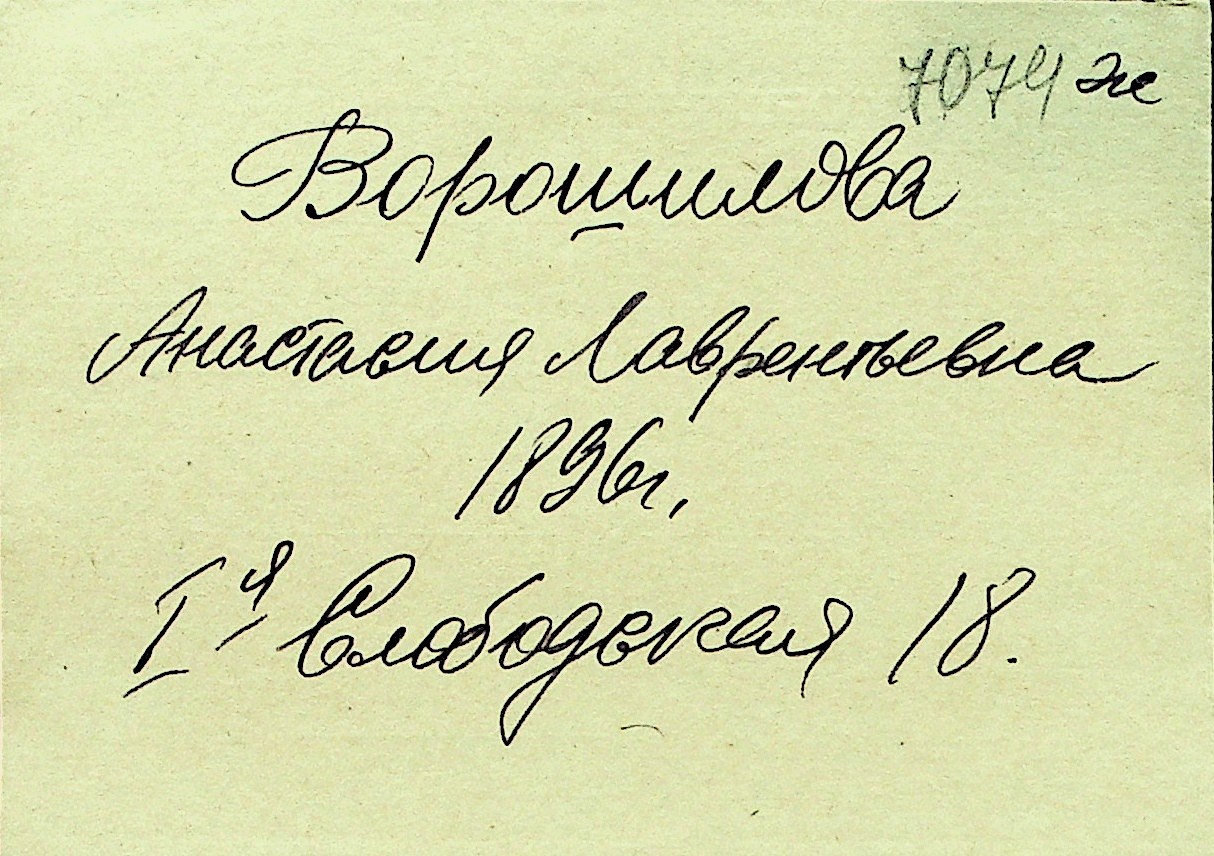 7074 ж
Ворошилова
Анастасия Лаврентьевна
1896 г.
I-я Слободская 18.